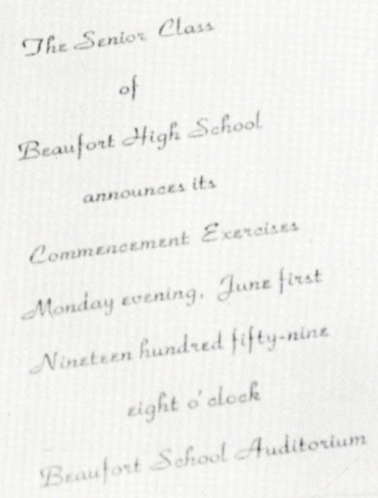 The Senior Class
of
Beaufort High School
announces its
Commencement Exercises
Monday evening, June first
Nineteen hundred fifty-nine
eight o'clock
Beaufort School Auditorium